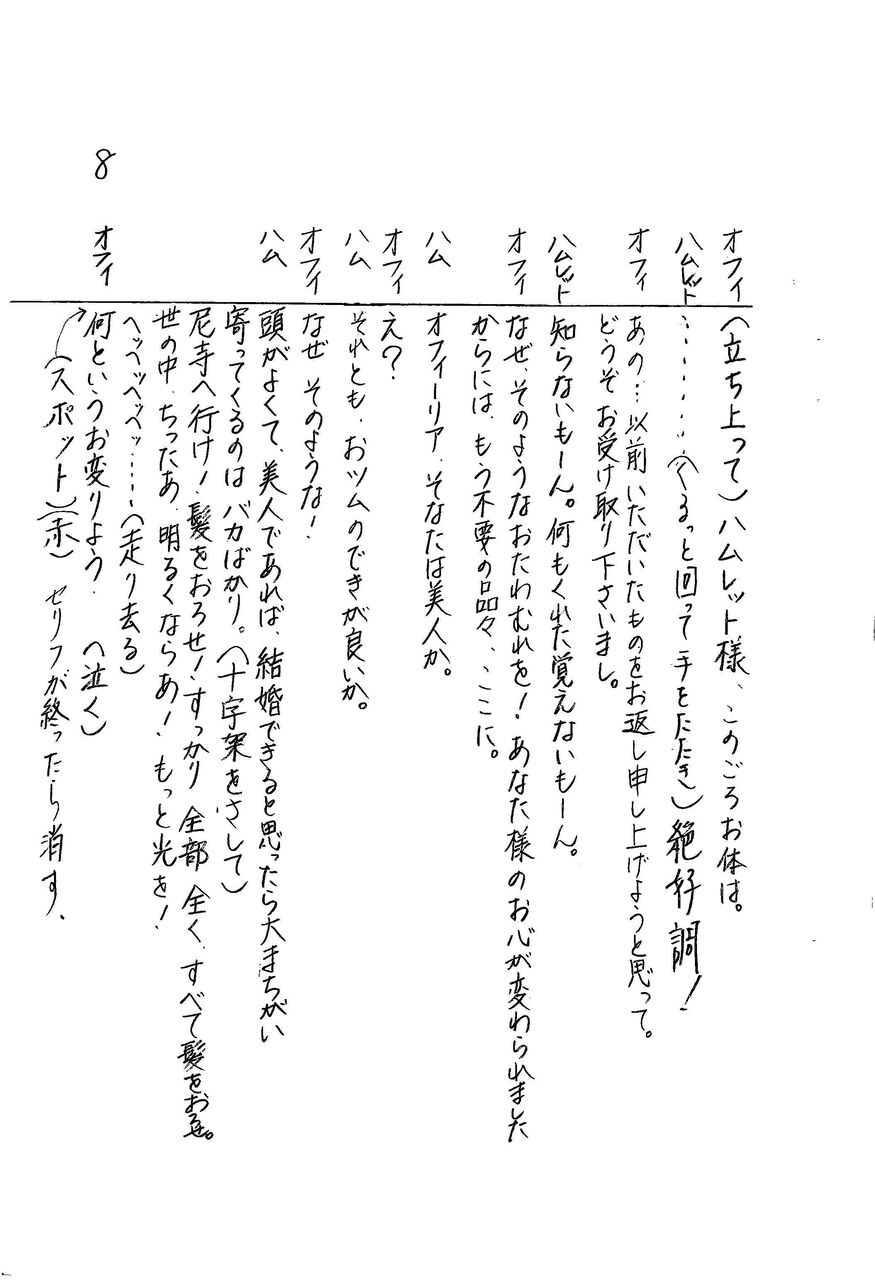 オフィ （立ち上って）ハムレット様、このごろお体は。
ハムレット ………（くるっと回って手をたたき）絶好調！
オフィ あの…以前いただいたものをお返し申し上げようと思って。
どうぞお受け取り下さいまし。
ハムレット 知らないもーん。何もくれた覚えないもーん。
オフィ なぜ、そのようなおたわむれを！あなた様のお心が変わられました
からには、もう不要の品々、ここに。
ハム オフィーリア、そなたは美人か。
オフィ え？
ハム それとも、おツムのできが良いか。
オフィ なぜ そのような！
ハム 頭がよくて、美人であれば、結婚できると思ったら大まちがい
寄ってくるのは バカばかり。（十字架をさして）
尼寺へ行け！髪をおろせ！すっかり 全部 全く、すべて髪をおろせ。
世の中、ちったあ、明るくならあ！もっと光を！
ヘッヘッヘッヘッ……（走り去る）
オフィ 何というお変りよう. （泣く）
（スポット）（赤） セリフが終ったら消す、
8